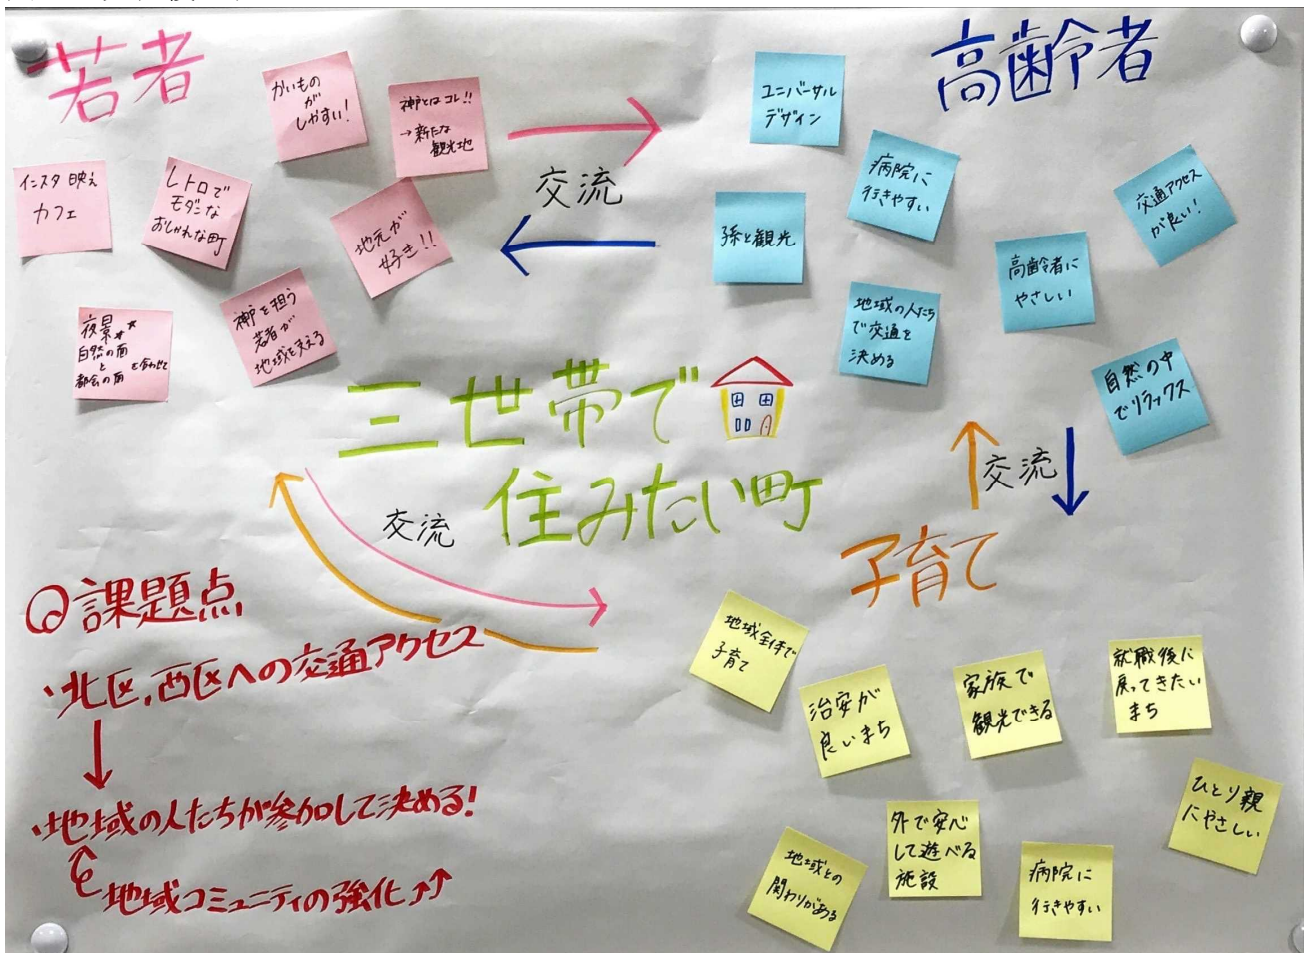 若者
かいもの
が
しやすい!
神戸とはコレ!!
→新たな
観光地
インスタ映え
カフェ
レトロで
モダンな
おしゃれな町
地元が
好き!!
夜景
自然の面
と
都会の面
を合わせて
神戸を担う
若者が
地域を支える
交流
高齢者
ユニバーサル
デザイン
病院に
行きやすい
交通アクセス
が良い!
孫と観光
高齢者に
やさしい
地域の人たち
で交通を
決める
自然の中
でリラックス
三世帯で
住みたい町
交流
交流
子育て
地域全体で
子育て
治安が
良いまち
家族で
観光できる
就職後に
戻ってきたい
まち
ひとり親
にやさしい
外で安心
して遊べる
施設
地域との
関わりがある
病院に
行きやすい
課題点
・北区,西区への交通アクセス
・地域の人たちが参加して決める!
地域コミュニティの強化